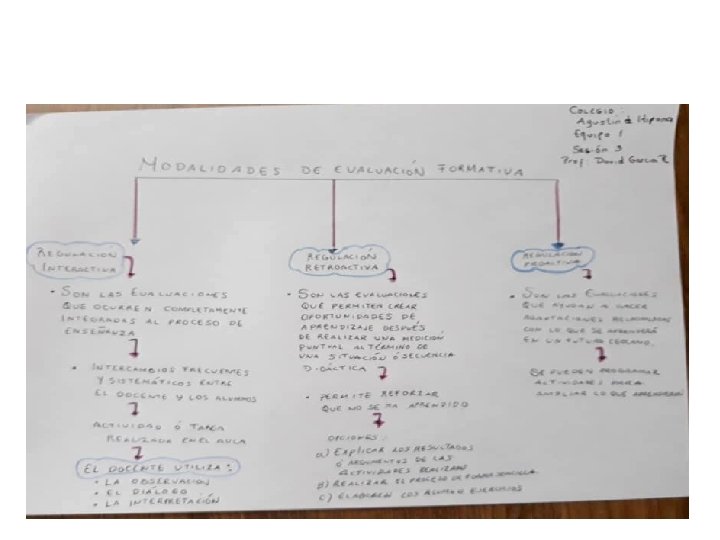 COLEGIO:
Agustin de Hipona
Equipo 1
Sesión 3
Prof: David García R
MODALIDADES DE EVALUACIÓN FORMATIVA
REGULACION
INTERACTIVA
• SON LAS EVALUACIONES
QUE OCURREN COMPLETAMENTE
INTEGRADAS AL PROCESO DE
ENSEÑANZA
• INTERCAMBIOS FRECUENTES
Y SISTEMÁTICOS ENTRE
EL DOCENTE Y LOS ALUMNOS
ACTIVIDAD Ó TAREA
REALIZADA EN EL AULA
EL DOCENTE UTILIZA:
• LA OBSERVACION
• EL DIÁLOGO
• LA INTERPRETACIÓN
REGULACIÓN
RETROACTIVA
• SON LAS EVALUACIONES
QUE PERMITEN CREAR
OPORTUNIDADES DE
APRENDIZAJE DESPUÉS
DE REALIZAR UNA MEDICIÓN
PUNTUAL AL TÉRMINO DE
UNA SITUACIÓN Ó SECUENCIA
DIDÁCTICA
• PERMITE REFORZAR
QUE NO SE HA APRENDIDO
OPCIONES:
a) EXPLICAR LOS RESULTADOS
Ó ARGUMENTOS DE LAS
ACTIVIDADES REALIZADAS
B) REALIZAR EL PROCESO DE FORMA SENCILLA
C) ELABOREN LOS ALUMNOS EJERCICIOS
REGULACION
PROACTIVA
• SON LAS EVALUACIONES
QUE AYUDAN A HACER
ADAPTACIONES RELACIONADAS
CON LO QUE SE APRENDERÁ
EN UN FUTURO CERCANO.
SE PUEDEN PROGRAMAR
ACTIVIDADES PARA
AMPLIAR LO QUE APRENDIERON